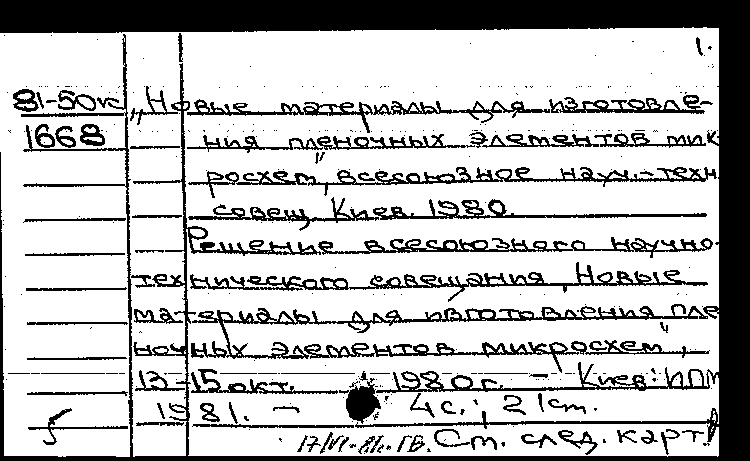 1.
81-50к „Новые материалы для изготовле-
1668 ния пленочных элементов мик
росхем", всесоюзное науч.-техн
совещ. Киев. 1980.
Решение всесоюзного научно-
технического совещания „Новые
материалы для изготовления пле
ночных элементов микросхем",
13-15 окт. 1980г. - Киев: ИПМ
1981. - 4с.; 21см.
17/VI-81г. ГВ. См. след. карт.